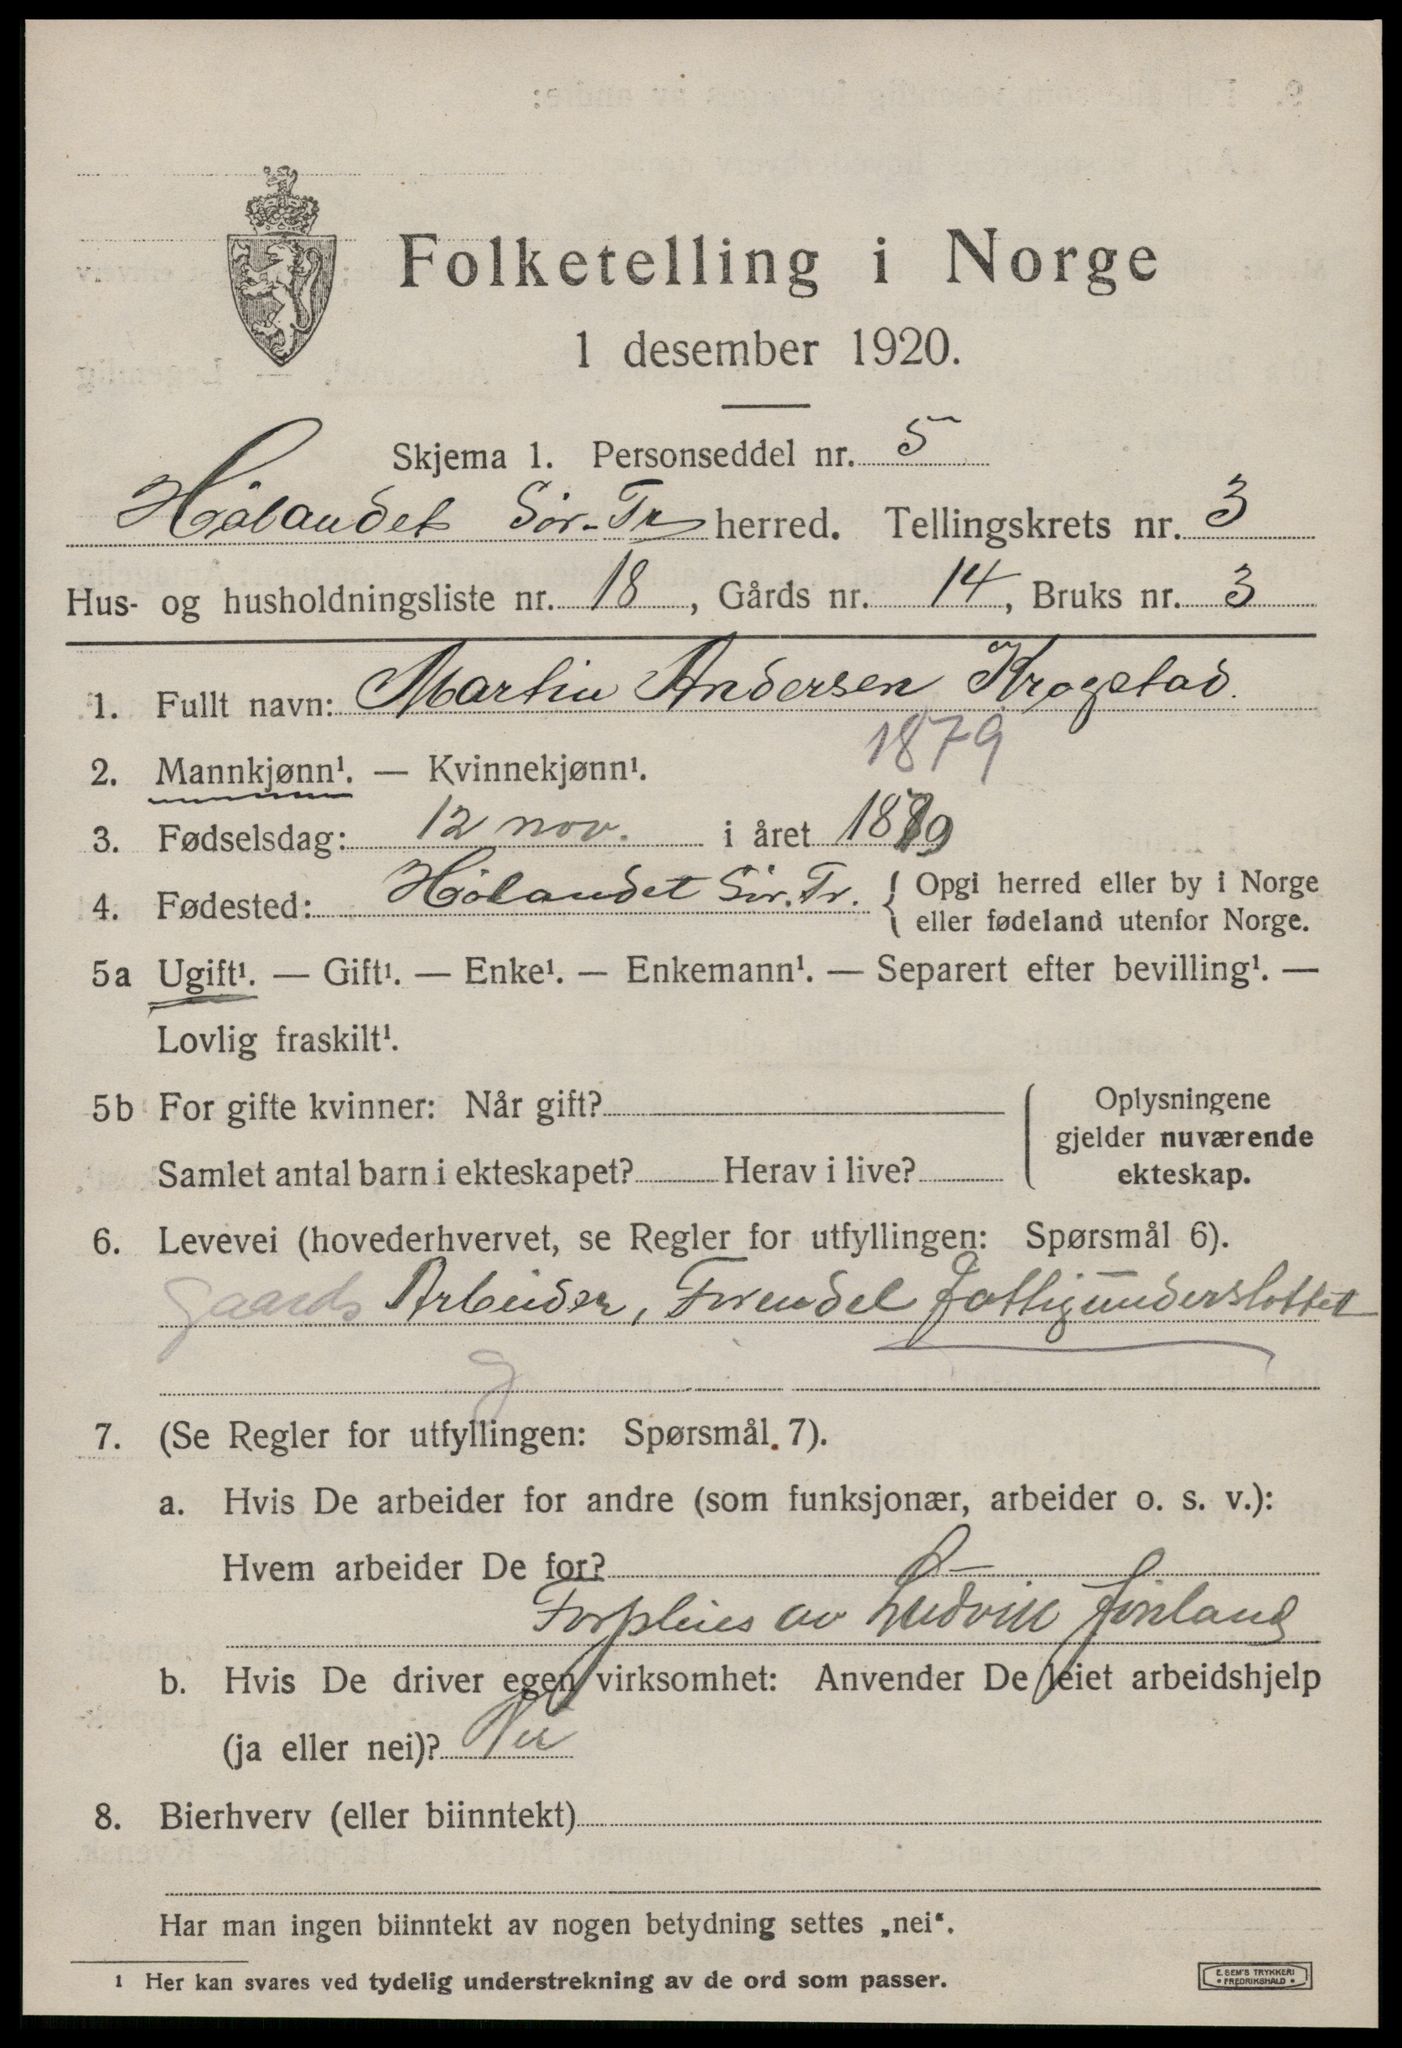 Folketelling i Norge
1 desember 1920.
Skjema 1. Personseddel nr. 5
Hølandet Sør-Tr herred. Tellingskrets nr. 3
Hus- og husholdningsliste nr. 18, Gårds nr. 14, Bruks nr. 3
1. Fullt navn: Martin Andersen Krogstad.
1879
2. Mannkjønn¹. — Kvinnekjønn¹.
3. Fødselsdag: 12 nov. i året 1879
4. Fødested: Hølandet Sør. Tr. { Opgi herred eller by i Norge
eller fødeland utenfor Norge.
5a Ugift¹. — Gift¹. — Enke¹. — Enkemann¹. — Separert efter bevilling¹. —
Lovlig fraskilt¹.
5b For gifte kvinner: Når gift?
Samlet antal barn i ekteskapet? Herav i live?
Oplysningene
gjelder nuværende
ekteskap.
6. Levevei (hovederhvervet, se Regler for utfyllingen: Spørsmål 6).
gaards Arbeider, fattigunderstøttet
7. (Se Regler for utfyllingen: Spørsmål 7).
a. Hvis De arbeider for andre (som funksjonær, arbeider o. s. v.):
Hvem arbeider De for?
Forpleies av Ludvik
b. Hvis De driver egen virksomhet: Anvender De leiet arbeidshjelp
(ja eller nei)? Nei
8. Bierhverv (eller biinntekt)
Har man ingen biinntekt av nogen betydning settes „nei“.
1 Her kan svares ved tydelig understrekning av de ord som passer.
E. SEM'S TRYKKERI
• FREDRIKSHALD •